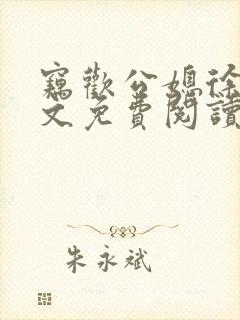 竊歡公媳徐
文免費閱讀
朱永斌